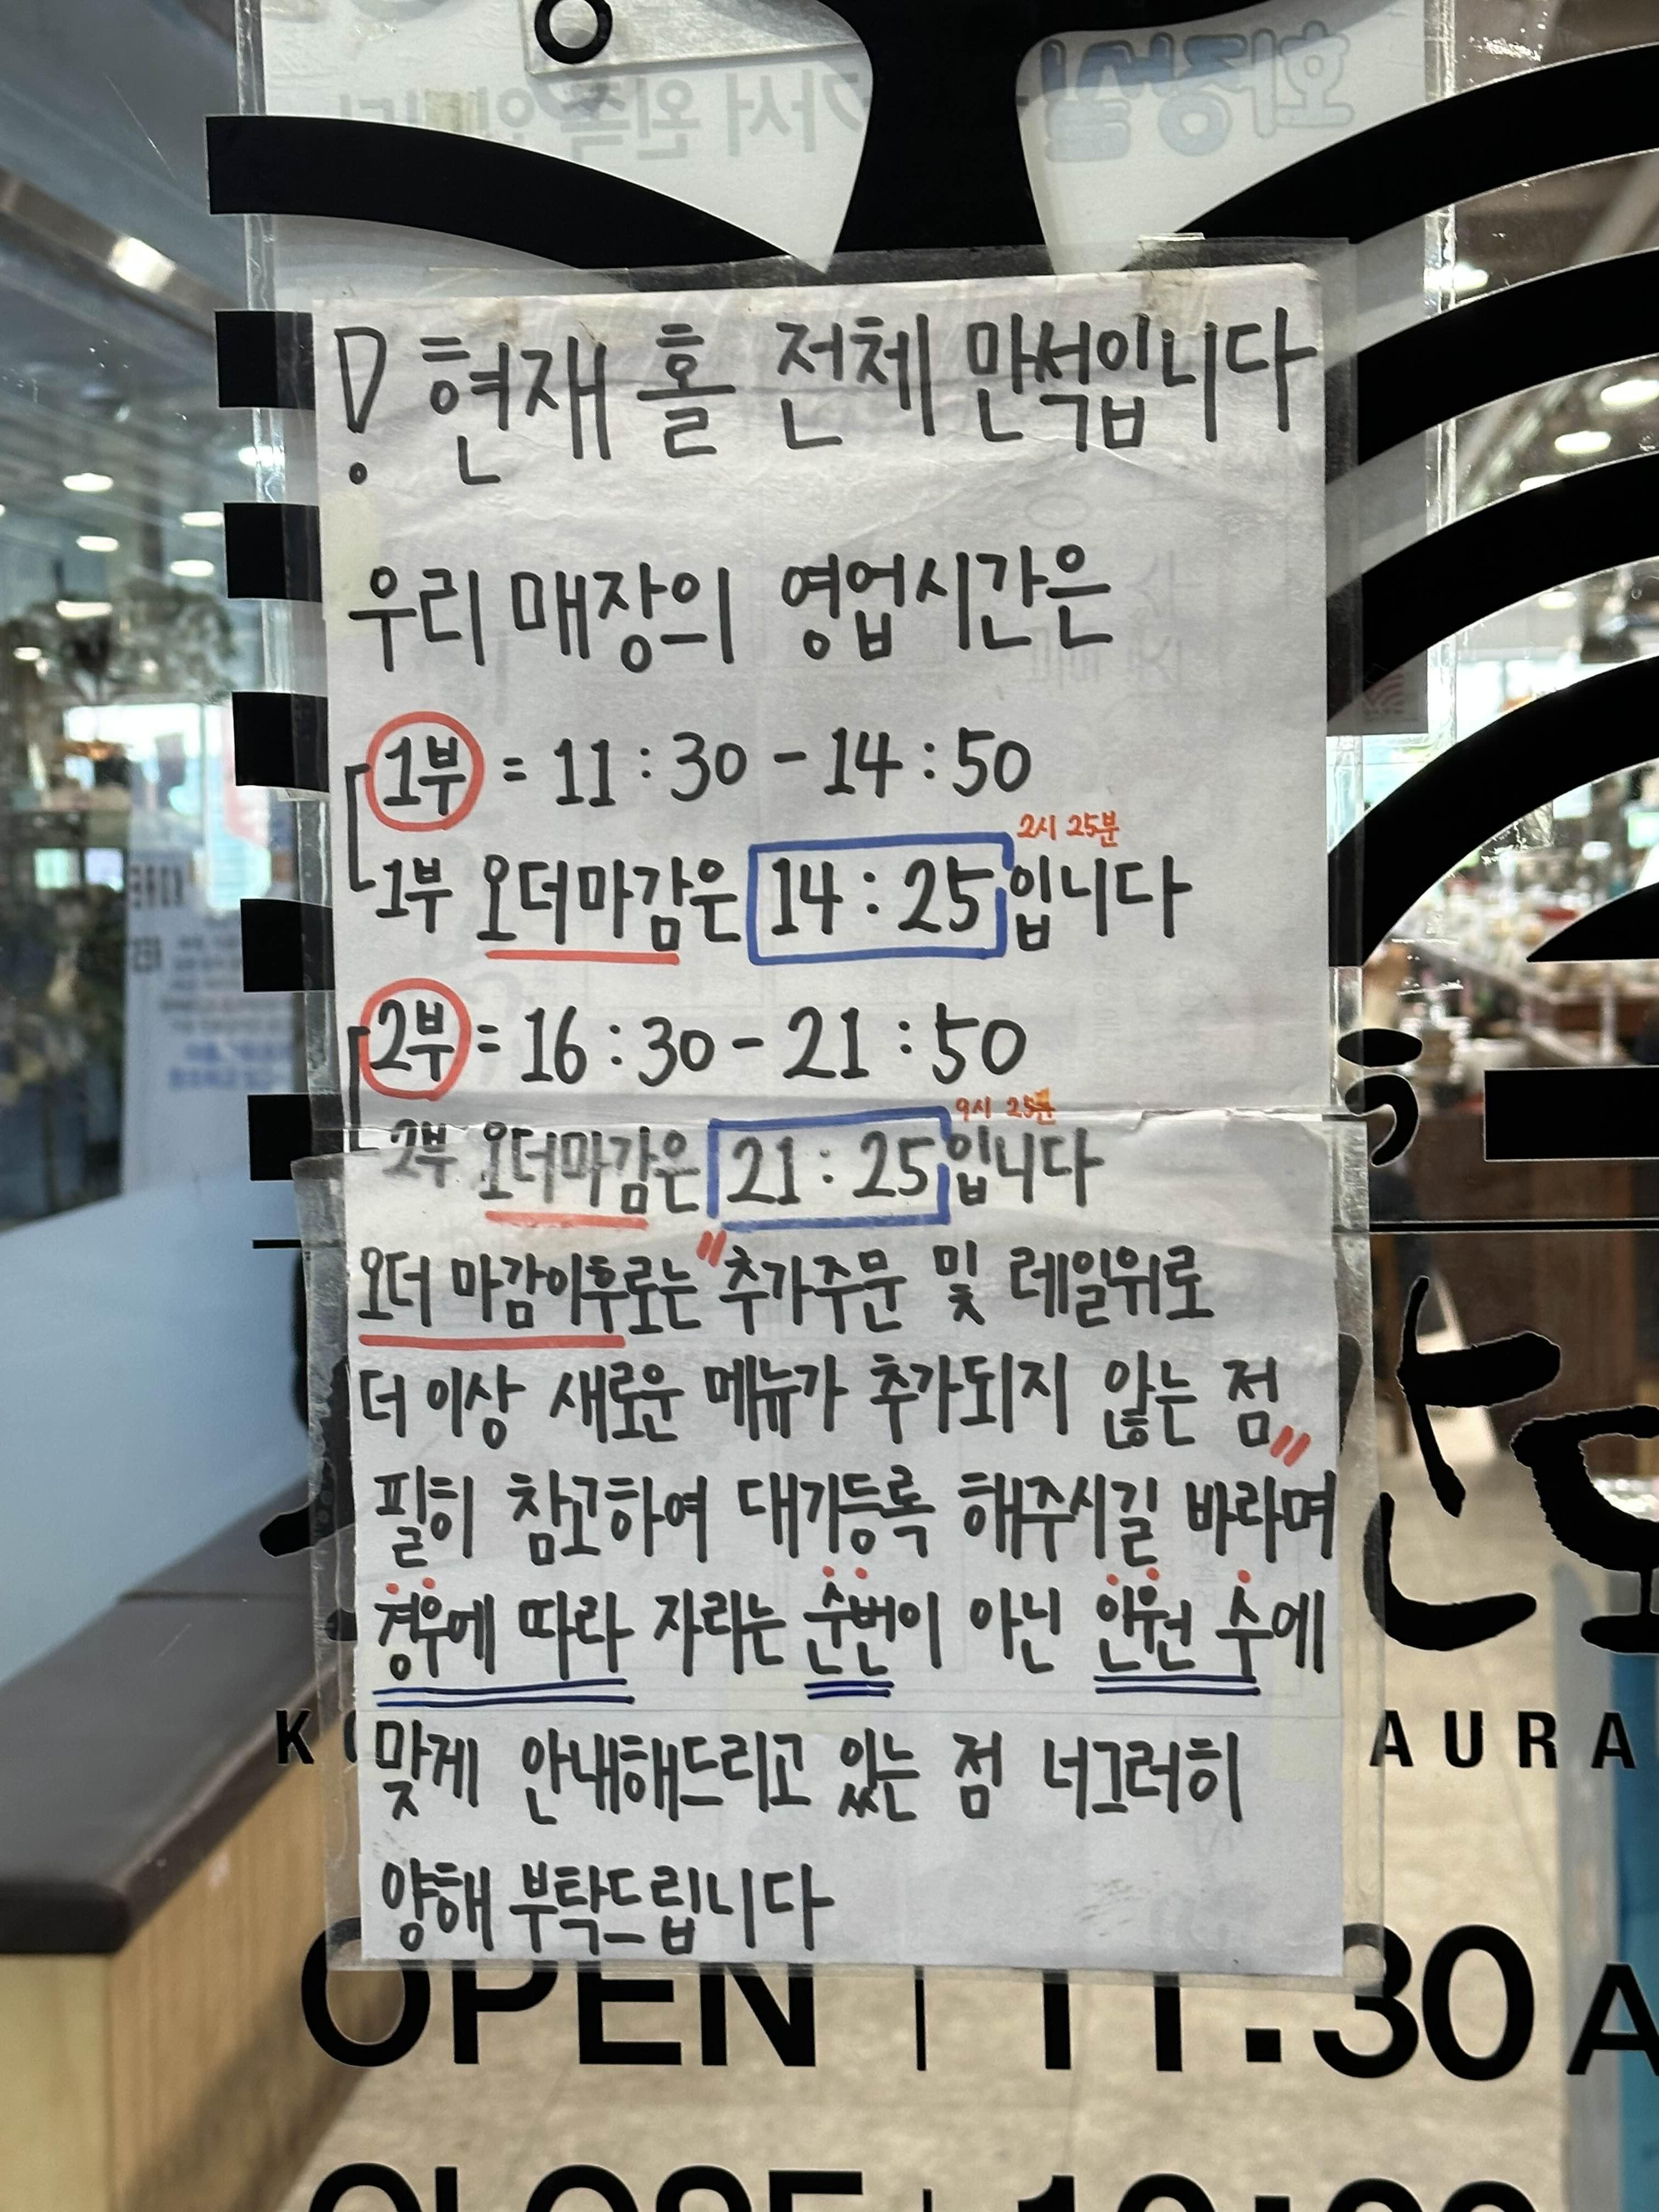 ! 현재 홀 전체 만석입니다
우리 매장의 영업시간은
1부 = 11:30 - 14:50
2시 25분
1부 오더마감은 14:25 입니다
2부 = 16:30 - 21:50
9시 25분
2부 오더마감은 21:25 입니다
오더 마감이후로는 "추가주문 및 레일위로
더 이상 새로운 메뉴가 추가되지 않는 점"
필히 참고하여 대기등록 해주시길 바라며
경우에 따라 자리는 순번이 아닌 인원 수에
맞게 안내해드리고 있는 점 너그러히
양해 부탁드립니다
AURA
OPEN | 11:30 A